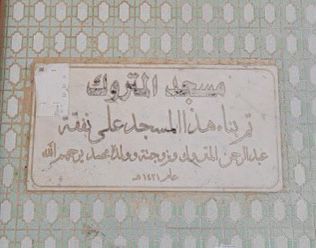 مسجد المتروك
تم بناء هذا المسجد على نفقة
عبدالرحمن المتروك وزوجته وولده محمد يرحمهم الله
عام ١٤٢١هـ